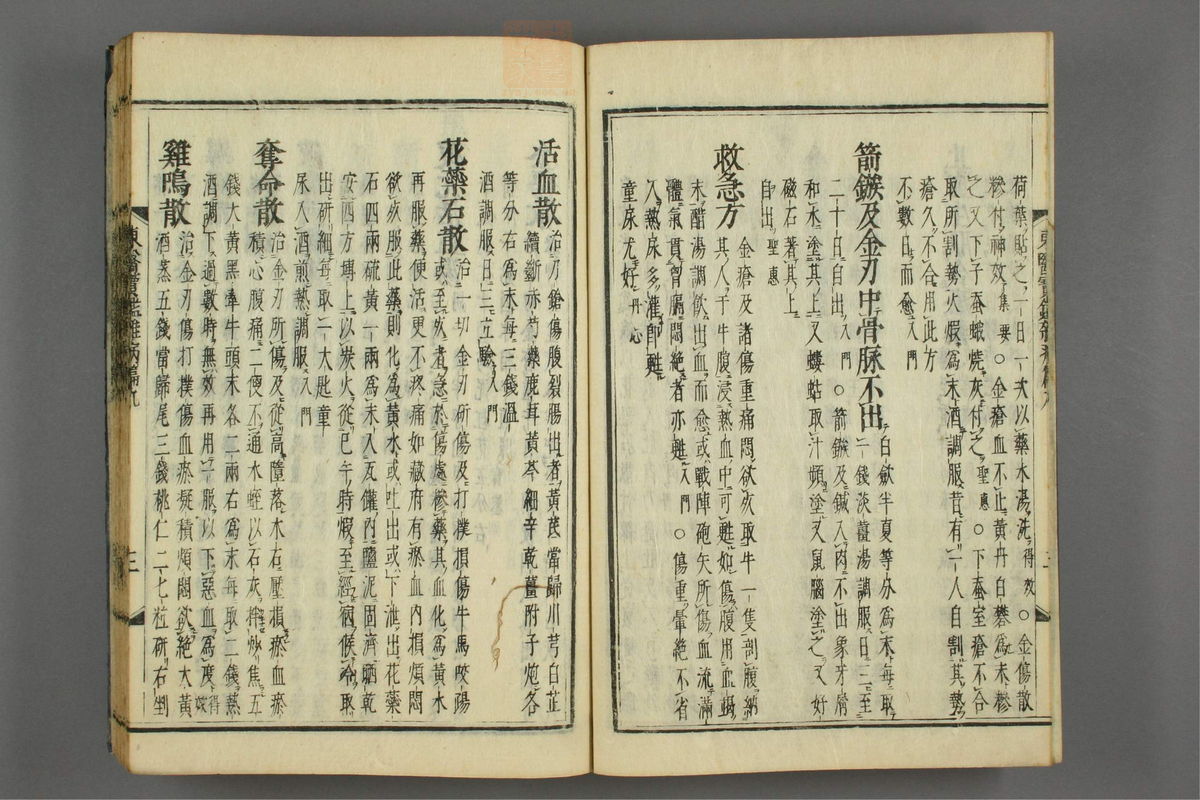 荷葉貼之一日一次以藥水湯洗得效○金傷散
糝付神效集要○金瘡血不止黃丹白礬爲末糝
之又下子蚕蛾燒灰付之聖惠○下蚕室瘡不合
取所割勢火煆爲末酒調服昔有一人自割其勢
瘡久不合用此方
不數日而愈入門
箭鏃及金刃中骨脉不出白歛半夏等分爲末每取
一錢淡薑湯調服日三至
二十日自出入門○箭鏃及鍼入肉不出象牙屑
和水塗其上又螻蛄取汁頻塗又鼠腦塗之又好
磁石著其上
自出聖惠
救急方金瘡及諸傷重痛悶欲灰取牛一隻剖腹納
其人于牛腹浸熱血中可甦如傷腹用血竭
末醋湯調飮出血而愈或戰陣砲矢所傷血流滿
體氣貫胷膈悶絶者亦甦入門○傷重暈絶不省
人熱尿多灌卽甦
童尿尤好丹心
活血散治刀鎗傷腹裂腸出者黃芪當歸川芎白芷
續斷赤芍藥鹿茸黃芩細辛乾薑附子炮各
等分右爲末每三錢溫
酒調服日三立驗入門
花蘂石散治一切金刃斫傷及打撲損傷牛馬咬踢
或至灰者急於傷處糝藥其血化爲黃水
再服藥便活更不疼痛如藏府有瘀血內損煩悶
欲灰服此藥則化爲黃水或吐出或下泄出花藥
石四兩硫黃一兩爲末入瓦鑵內鹽泥固濟晒乾
安四方磚上以炭火從巳午時煆至經宿候冷取
出研細每取一大匙童
尿入酒煎熱調服入門
奪命散治金刃所傷及從高墮落木石壓損瘀血瘀
積心腹痛二便不通水蛭以石灰拌炒焦五
錢大黃黑牽牛頭末各二兩右爲末每取二錢熱
酒調下過數時無效再用一服以下惡血爲度得效
雞鳴散治金刃傷打撲傷血瘀疑積煩悶欲絶大黃
酒蒸五錢當歸尾三錢桃仁二七粒研右剉
東醫寶鑑雜病篇九